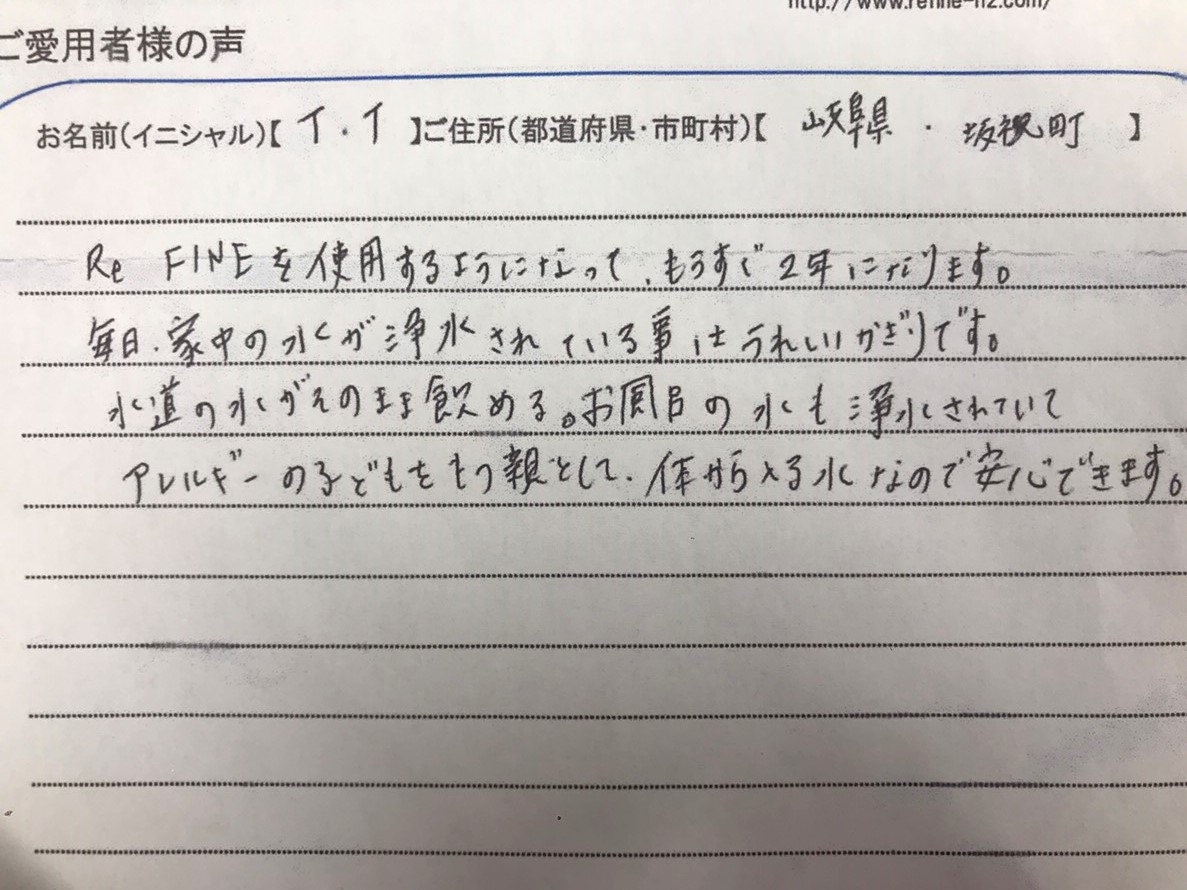 http://www.refine-h2.com/
ご愛用者様の声
お名前(イニシャル)【 イ.イ 】ご住所(都道府県・市町村)【 岐阜県 ・ 坂祝町 】
Re FINEを使用するようになって、もうすぐ2年になります。
毎日、家中の水が浄水されている事はうれしいかぎりです。
水道の水がそのまま飲める。お風呂の水も浄水されていて
アレルギーの子どもをもつ親として、体から入る水なので安心できます。